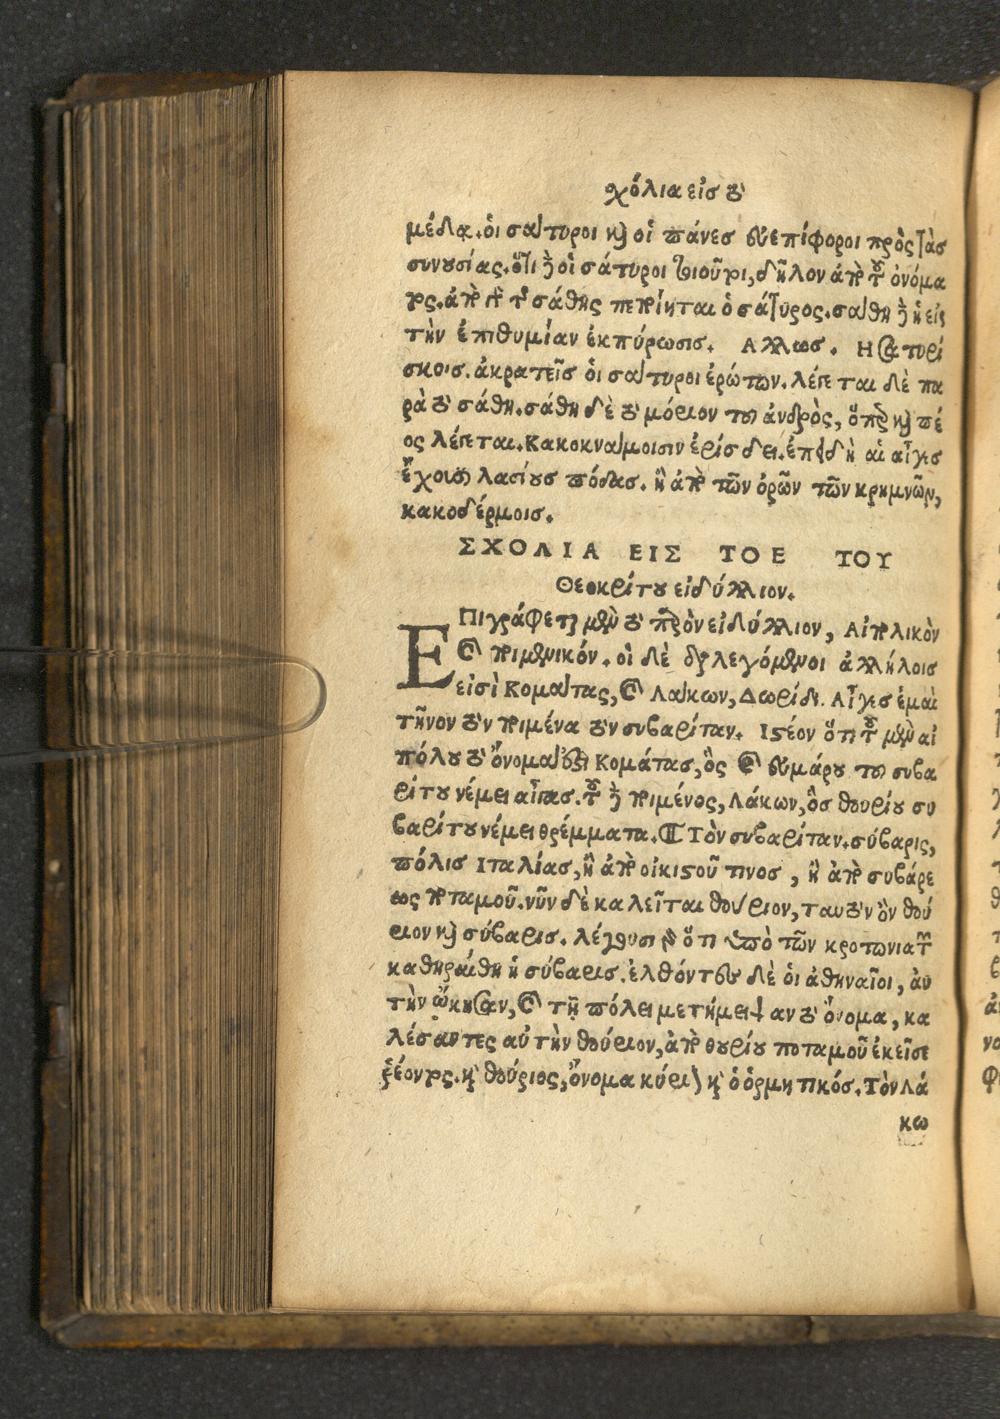 σχόλια εἰς τὸ
μέδα. οἱ σάτυροι καὶ οἱ πάνες εὐεπίφοροι πρὸς τὰς
συνουσίας. ὅτι δὲ οἱ σάτυροι τοιοῦτοι, δῆλον ἀπὸ τοῦ ὀνόμα
τος. ἀπὸ γὰρ τῆς σάθης πεποίηται ὁ σάτυρος. σάθη δὲ ἡ εἰς
τὴν ἐπιθυμίαν ἐκπύρωσις. Αλλως. Η σατυρί
σκοις. ἀκρατεῖς οἱ σάτυροι ἐρώτων. λέγεται δὲ πα
ρὰ τὸ σάθη. σάθη δὲ τὸ μόριον τοῦ ἀνδρὸς, ὅπερ καὶ πέ
ος λέγεται. Κακοκνάμοισιν ἐρίσδει. ἐπειδὴ αἱ αἶγες
ἔχουσι λασίους πόδας. ἢ ἀπὸ τῶν ὀρῶν τῶν κρημνῶν,
κακοδέρμοις.
ΣΧΟΛΙΑ ΕΙΣ ΤΟ Ε ΤΟΥ
Θεοκρίτου εἰδύλλιον.
ΕΠιγράφεται μὲν τὸ παρὸν εἰδύλλιον, Αἰπολικὸν
καὶ ποιμενικόν. οἱ δὲ διαλεγόμενοι ἀλλήλοις
εἰσὶ Κομάτας, καὶ Λάκων, Δωρίδι. Αἶγες ἐμαὶ
τῆνον τὸν ποιμένα τὸν συβαρίταν. Ιστέον ὅτι τοῦ μὲν αἰ
πόλου τὸ ὄνομα Κομάτας, ὃς καὶ εὐμάρου τοῦ συβα
ρίτου νέμει αἶγας. τοῦ δὲ ποιμένος, Λάκων, ὃς θουρίου συ
βαρίτου νέμει θρέμματα. ¶ Τὸν συβαρίταν. σύβαρις,
πόλις Ιταλίας, ἢ ἀπὸ οἰκιστοῦ τινος, ἢ ἀπὸ συβάρε
ως ποταμοῦ. νῦν δὲ καλεῖται θούριον, ταυτὸν ὂν θού
ριον καὶ σύβαρις. λέγουσι γὰρ ὅτι ὑπὸ τῶν κροτωνιατῶν
καθῃρέθη ἡ σύβαρις. ἐλθόντες δὲ οἱ ἀθηναῖοι, αὐ
τὴν ᾤκησαν, καὶ τῇ πόλει μετήμειψαν τὸ ὄνομα, κα
λέσαντες αὐτὴν θούριον, ἀπὸ θουρίου ποταμοῦ ἐκεῖσε
ῥέοντος. ἢ θούριος, ὄνομα κύριον ἢ ὁ ὁρμητικός. Τὸν Λά
κω